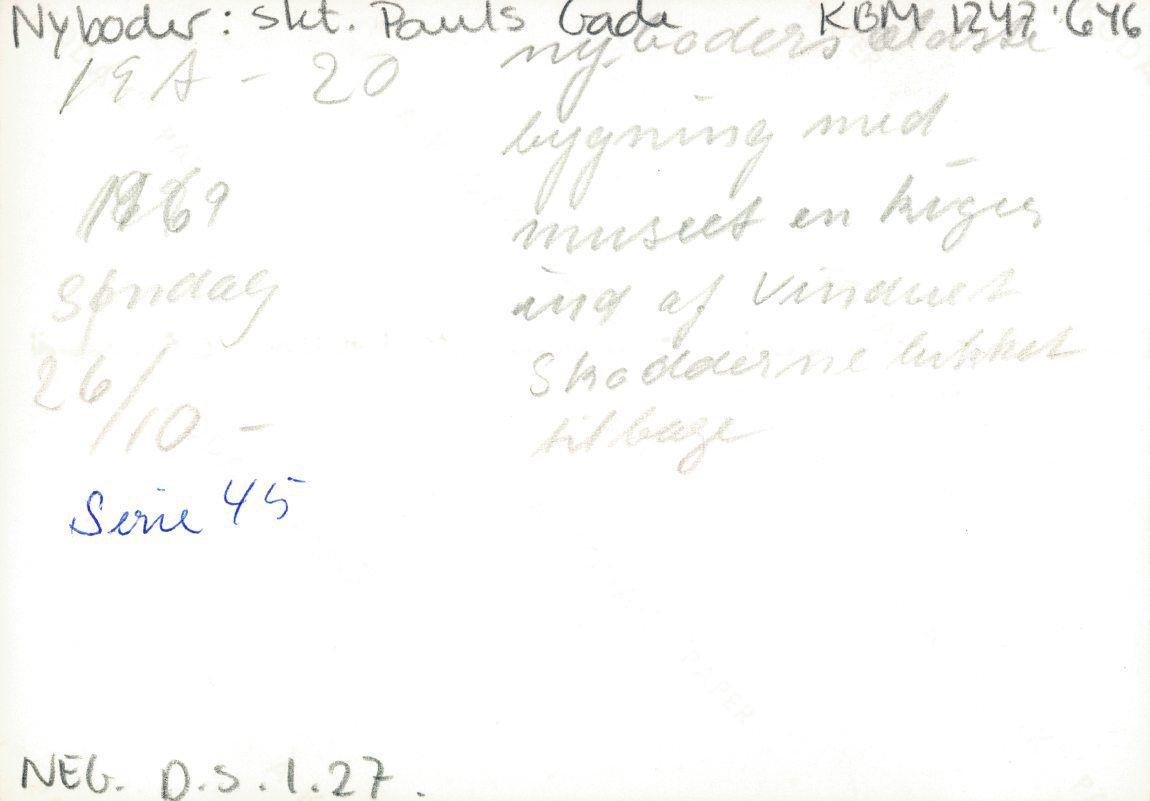 Nyboder: Skt. Pauls Gade KBM 1247:646
19A - 20
nyboders ældste
bygning med
1969
museet en kiges
Søndag
ind af Vinduet
26/10 -
Skodderne lukket
tilbage
Serie 45
PAPER
NEG. D.S.1.27.